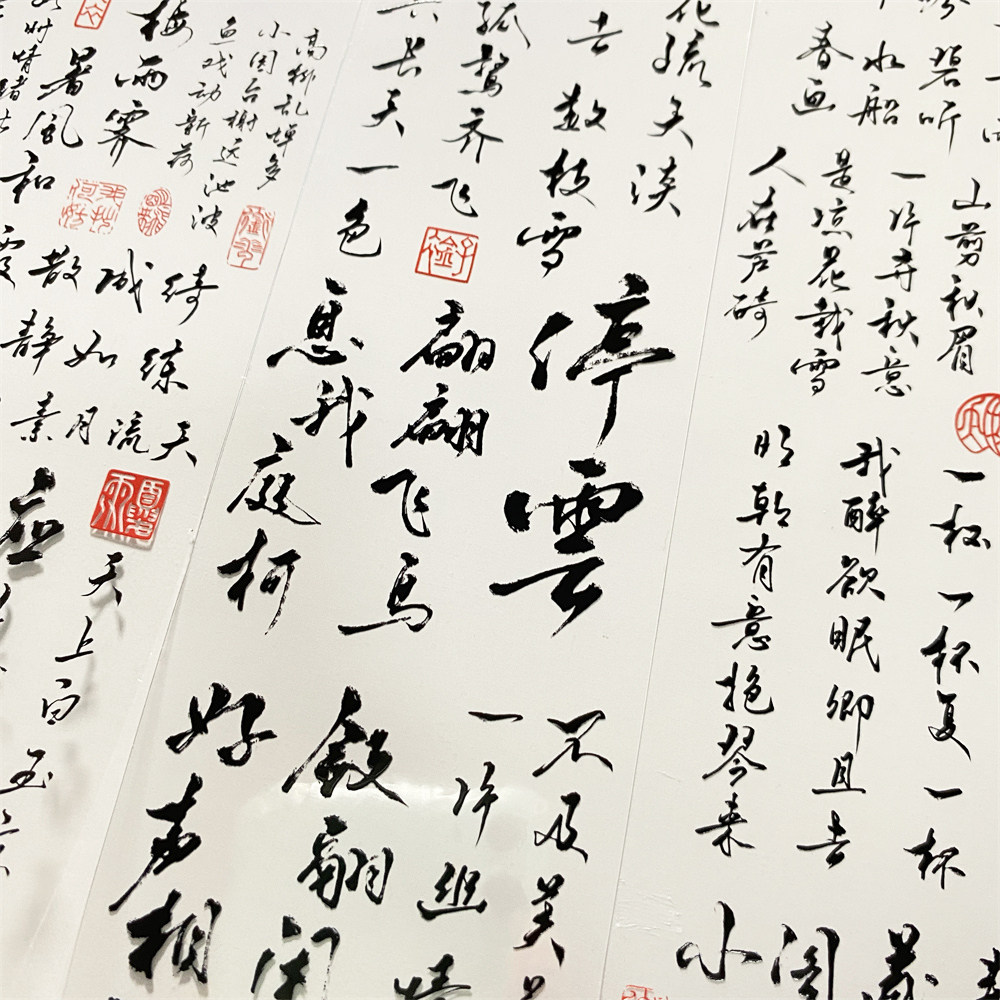 春水碧
画船听雨
山剪秋眉
一片寿秋意
是凉花载雪
人在芦碕
一杯一杯复一杯
我醉欲眠卿且去
明朝有意抱琴来
小阁
花疏天淡
去数枝雪
孤鹜齐飞
共长天一色
停雲
翩翩飞鸟
息我庭柯
不及美
一片
敛翮闲
好声相
高柳乱蝉多
小园台榭远池波
鱼戏动新荷
梅雨霁
暑风和
霞散成绮
静如练
素月流天
天上白玉京